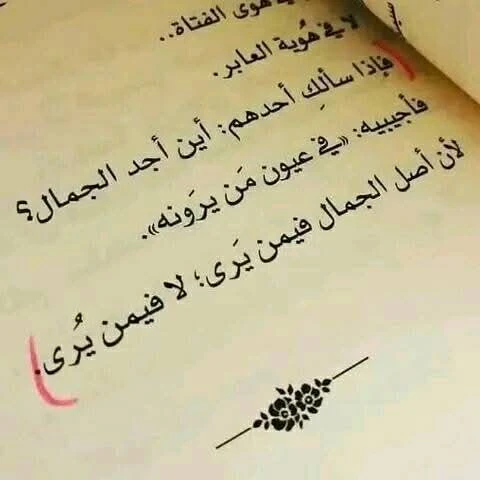 في هوى الفتاة..
لا في هُوية العابر.
فإذا سألكِ أحدهم: أين أجد الجمال؟
فأجيبيه: «في عيون مَن يرَونه».
لأن أصل الجمال فيمن يَرى؛ لا فيمن يُرى.